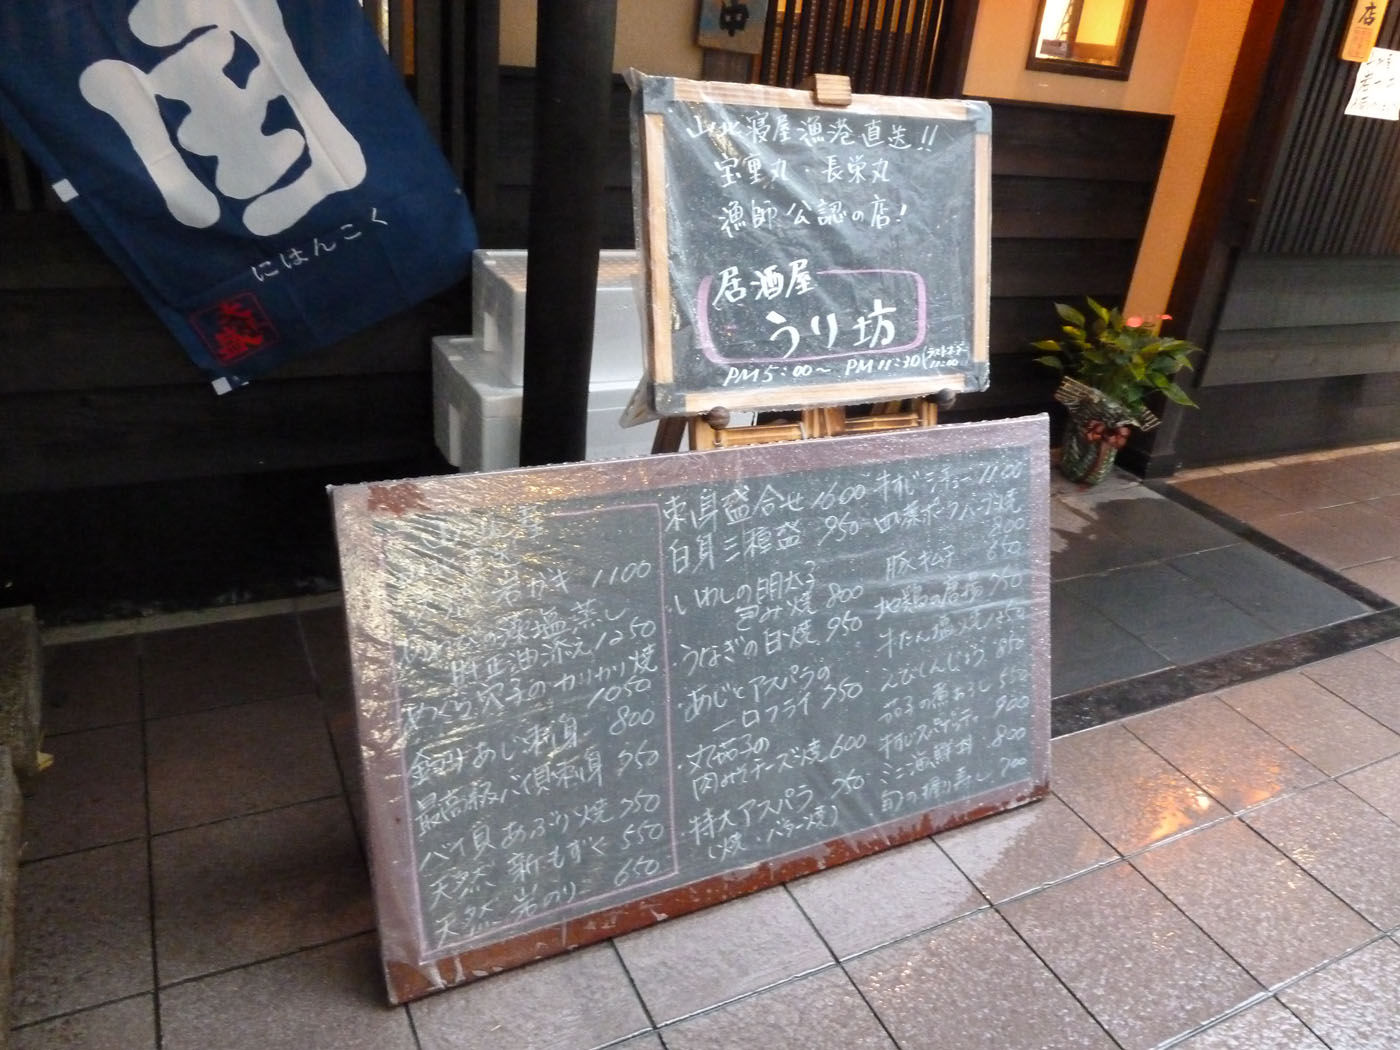 にほんこく
山北寝屋漁港直送!!
宝重丸・長栄丸
漁師公認の店!
居酒屋
うり坊
PM5:00〜PM11:30(ラストオーダー
11:00
岩ガキ 1100
の藻塩蒸し
肝正油添え 1250
めくら穴子のカリカリ焼
1050
あじ刺身 800
最高級バイ貝刺身 950
バイ貝あぶり焼 750
天然 新もずく 550
天然 岩のり 650
刺身盛合せ 1600
白身三種盛 950
・いわしの明太子
包み焼 800
・うなぎの白焼 950
・あじとアスパラの
一口フライ 750
・丸茄子の
肉みそチーズ焼 600
・特大アスパラ 750
(焼・バター焼)
1100
800
豚キムチ 650
地鶏の唐揚 750
牛たん塩焼 1250
えびしんじょう 850
茄子の煮おろし 550
900
ミニ海鮮丼 800
旬の握り寿し 700
店